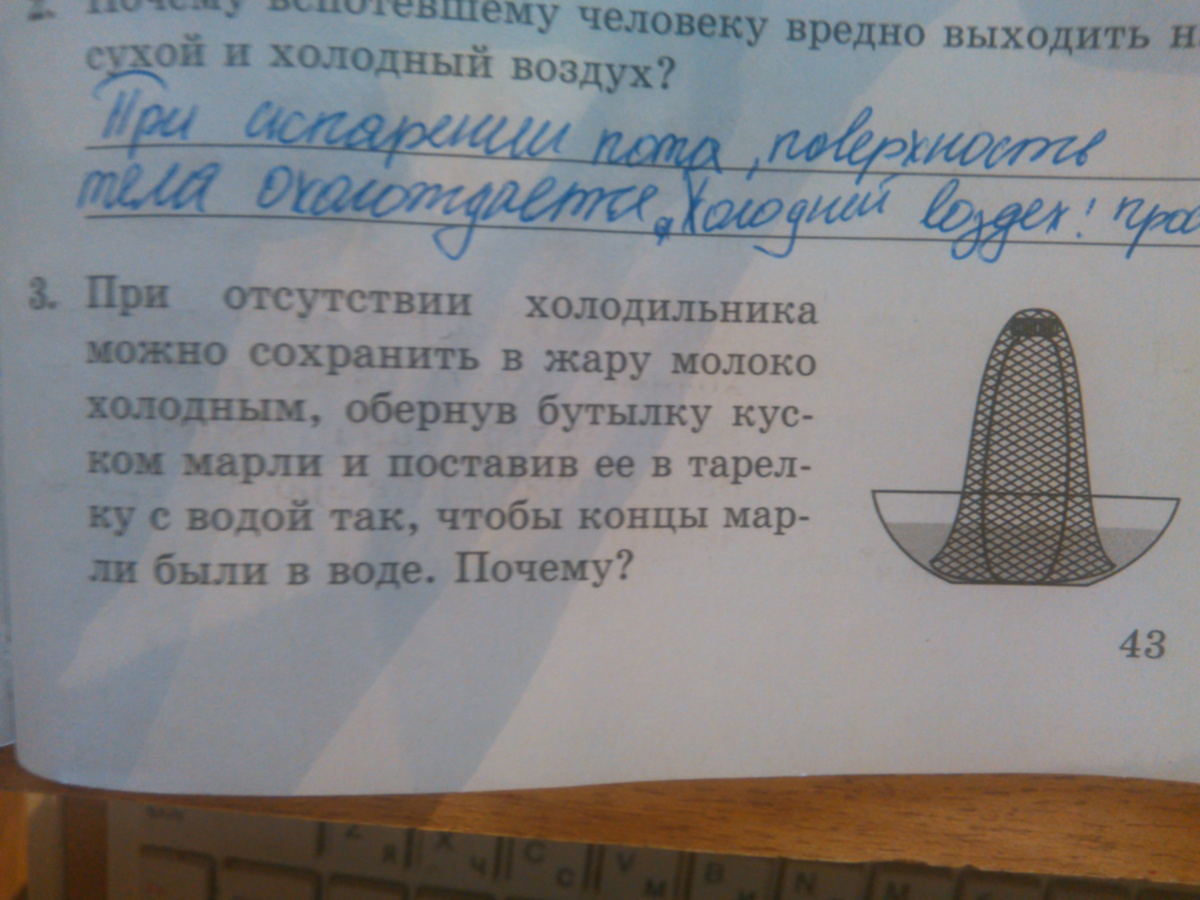 2. Почему вспотевшему человеку вредно выходить н
сухой и холодный воздух?
При испарении пота, поверхность
тела охолождается, Холодний воздех!
3. При отсутствии холодильника
можно сохранить в жару молоко
холодным, обернув бутылку кус-
ком марли и поставив ее в тарел-
ку с водой так, чтобы концы мар-
ли были в воде. Почему?
43
Z Я X Ч C С V М B И N M